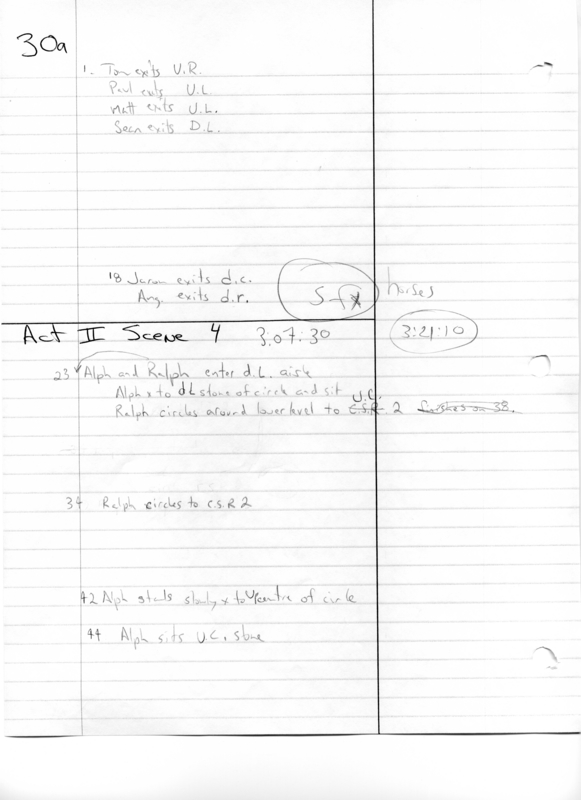 30a
1. Tom exits U.R.
Paul exits U.L
Matt exits U.L.
Sean exits D.L.
18 Jaron exits d.c.
Ang. exits d.r.
Sfx horses
Act II Scene 4 3:07:30 3:21:10
23 Alph and Ralph enter d.L. aisle
Alph x to dL stone of circle and sit
U.C.
Ralph circles around lower level to C.S.R 2 finishes on 38.
34 Ralph circles to C.S.R 2
42 Alph stands slowly x to U/centre of circle
44 Alph sits U.C. stone